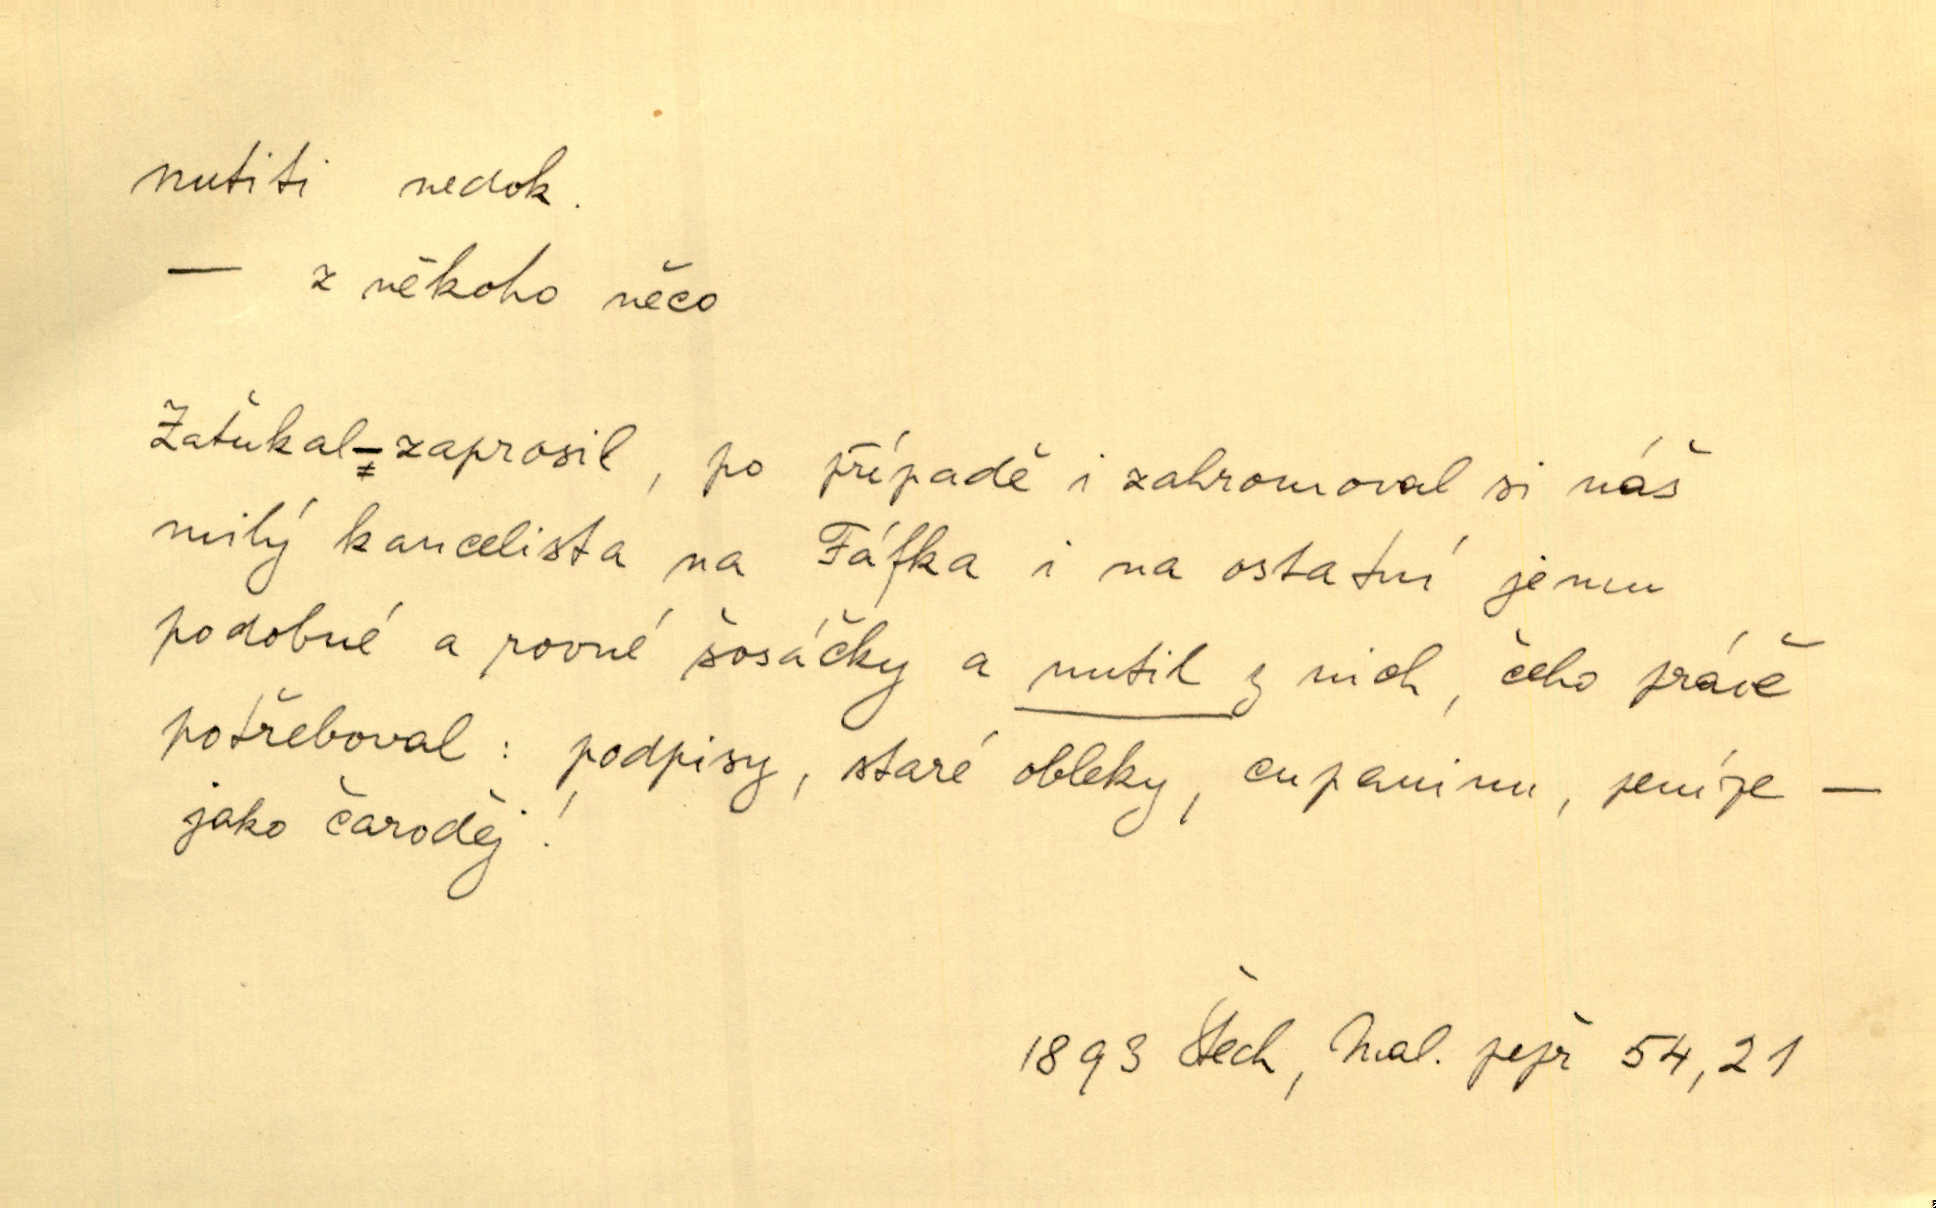 nutiti nedok.
— z někoho něco
Žaťukal-zaprosil, po případě i zahromoval si náš
milý kancelista na Fáfka i na ostatní jemu
podobné a rovné šosáčky a nutil z nich, čeho právě
potřeboval: podpisy, staré obleky, cupaninu, peníze —
jako čaroděj!
1893 Štech, Mal. pepř 54,21